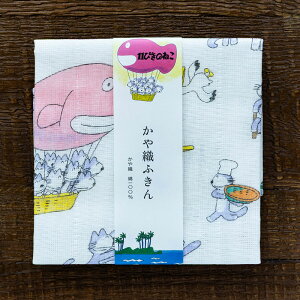 11ぴきのねこ
かや織ふきん
かや織 綿一〇〇%